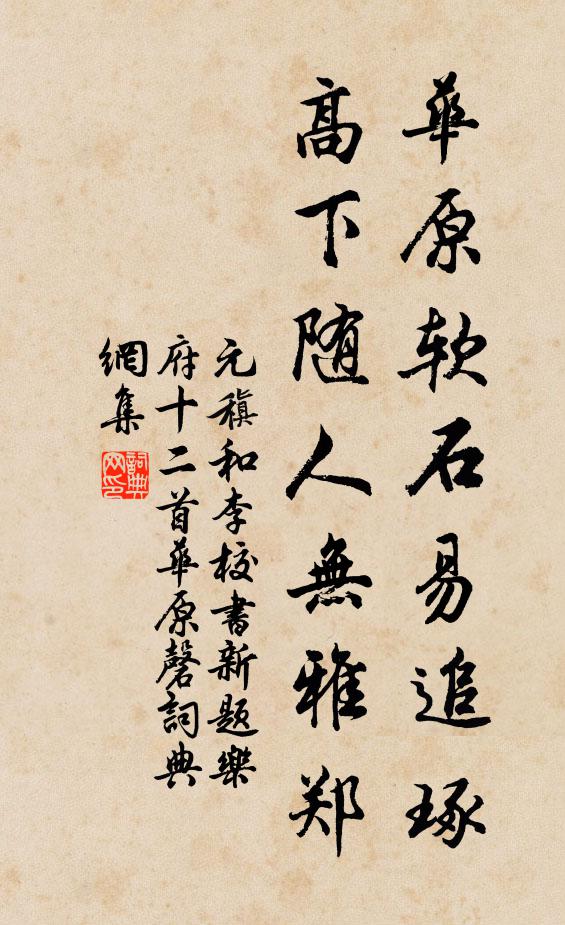 華原软石易追琢
高下随人無雅郑
元稹和李校書新题樂
府十二首華原磬詞典
網集
詞典
网印